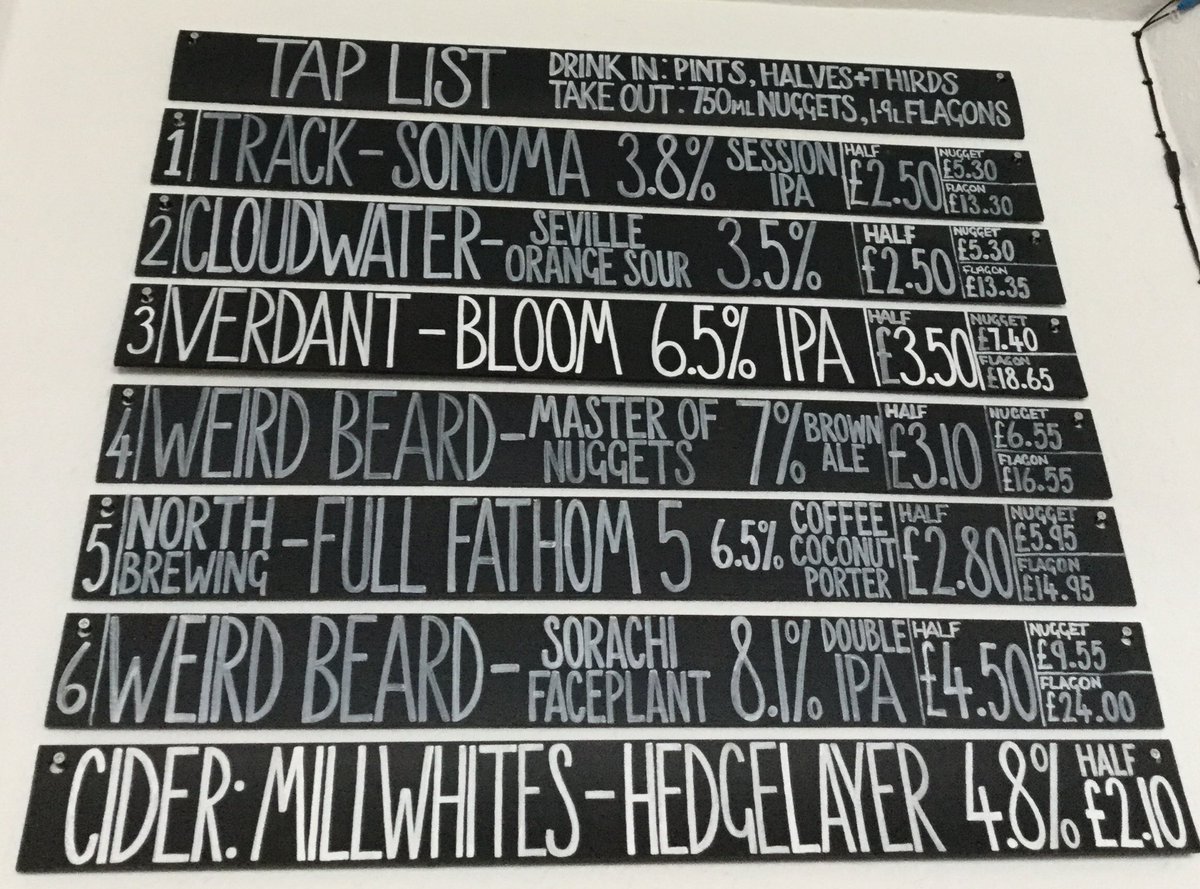 TAP LIST DRINK IN: PINTS, HALVES + THIRDS
TAKE OUT: 750ML NUGGETS, 1.9L FLAGONS
1 TRACK - SONOMA 3.8% SESSION IPA HALF £2.50 NUGGET £5.30 FLAGON £13.30
2 CLOUDWATER - SEVILLE ORANGE SOUR 3.5% HALF £2.50 NUGGET £5.30 FLAGON £13.35
3 VERDANT - BLOOM 6.5% IPA HALF £3.50 NUGGET £7.40 FLAGON £18.65
4 WEIRD BEARD - MASTER OF NUGGETS 7% BROWN ALE HALF £3.10 NUGGET £6.55 FLAGON £16.55
5 NORTH BREWING - FULL FATHOM 5 6.5% COFFEE COCONUT PORTER HALF £2.80 NUGGET £5.95 FLAGON £14.95
6 WEIRD BEARD - SORACHI FACEPLANT 8.1% DOUBLE IPA HALF £4.50 NUGGET £9.55 FLAGON £24.00
CIDER: MILLWHITES - HEDGELAYER 4.8% HALF £2.10